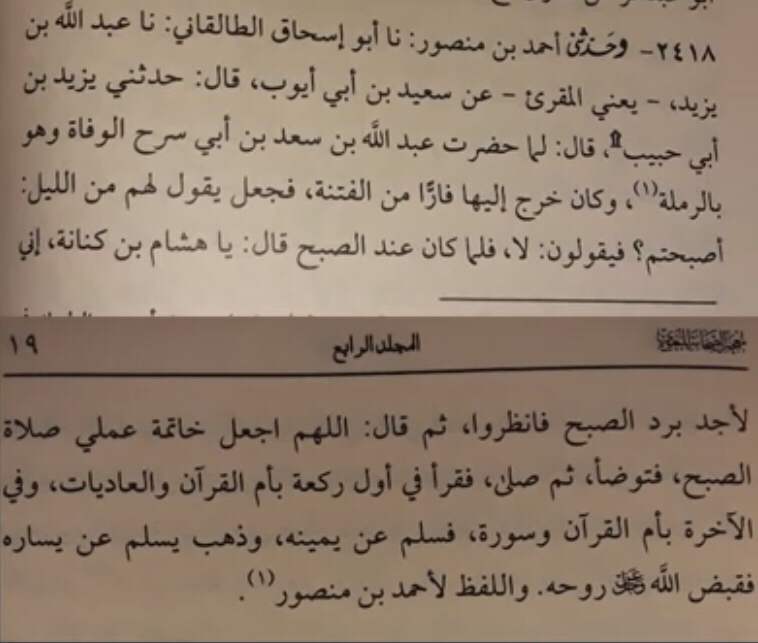 ٢٤١٨- وحدثني أحمد بن منصور: نا أبو إسحاق الطالقاني: نا عبد الله بن
يزيد، - يعني المقرئ - عن سعيد بن أبي أيوب، قال: حدثني يزيد بن
أبي حبيب، قال: لما حضرت عبد الله بن سعد بن أبي سرح الوفاة وهو
بالرملة(١)، وكان خرج إليها فارًّا من الفتنة، فجعل يقول لهم من الليل:
أصبحتم؟ فيقولون: لا، فلما كان عند الصبح قال: يا هشام بن كنانة، إني
المجلد الرابع ١٩
لأجد برد الصبح فانظروا، ثم قال: اللهم اجعل خاتمة عملي صلاة
الصبح، فتوضأ، ثم صلى، فقرأ في أول ركعة بأم القرآن والعاديات، وفي
الآخرة بأم القرآن وسورة، فسلم عن يمينه، وذهب يسلم عن يساره
فقبض الله ﷿ روحه. واللفظ لأحمد بن منصور(١).